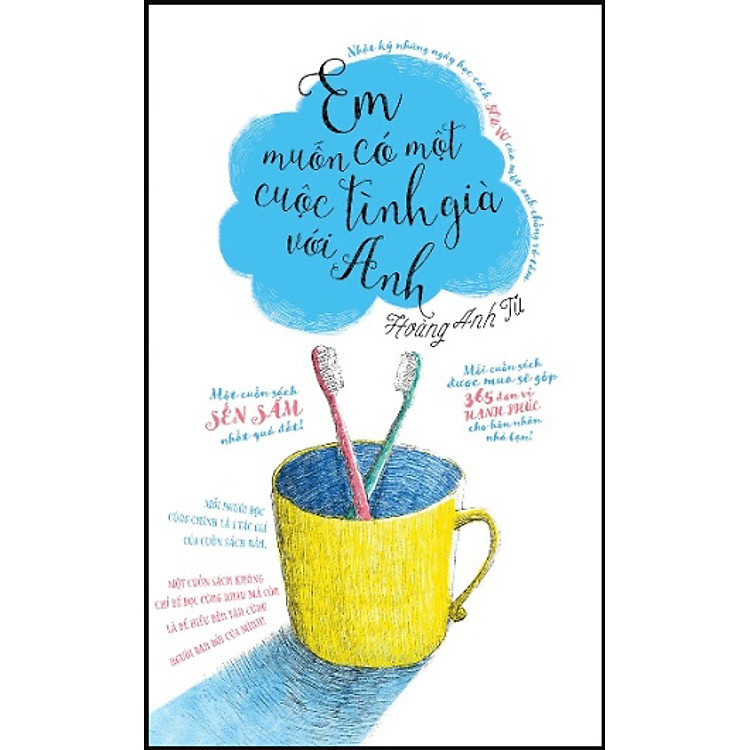 Nhật ký những ngày học cách YÊU VỢ của một anh chồng vô tâm
Em
muốn có một
cuộc tình già
với Anh
Hoàng Anh Tú
Một cuốn sách
SẾN SẨM
nhất quả đất!
Mỗi cuốn sách
được mua sẽ góp
365 đơn vị
HẠNH PHÚC
cho hôn nhân
nhà bạn!
MỖI NGƯỜI ĐỌC
CŨNG CHÍNH LÀ 1 TÁC GIẢ
CỦA CUỐN SÁCH NÀY.
MỘT CUỐN SÁCH KHÔNG
CHỈ ĐỂ ĐỌC CÙNG NHAU MÀ CÒN
LÀ ĐỂ HIỂU ĐẾN TẬN CÙNG
NGƯỜI BẠN ĐỜI CỦA MÌNH!